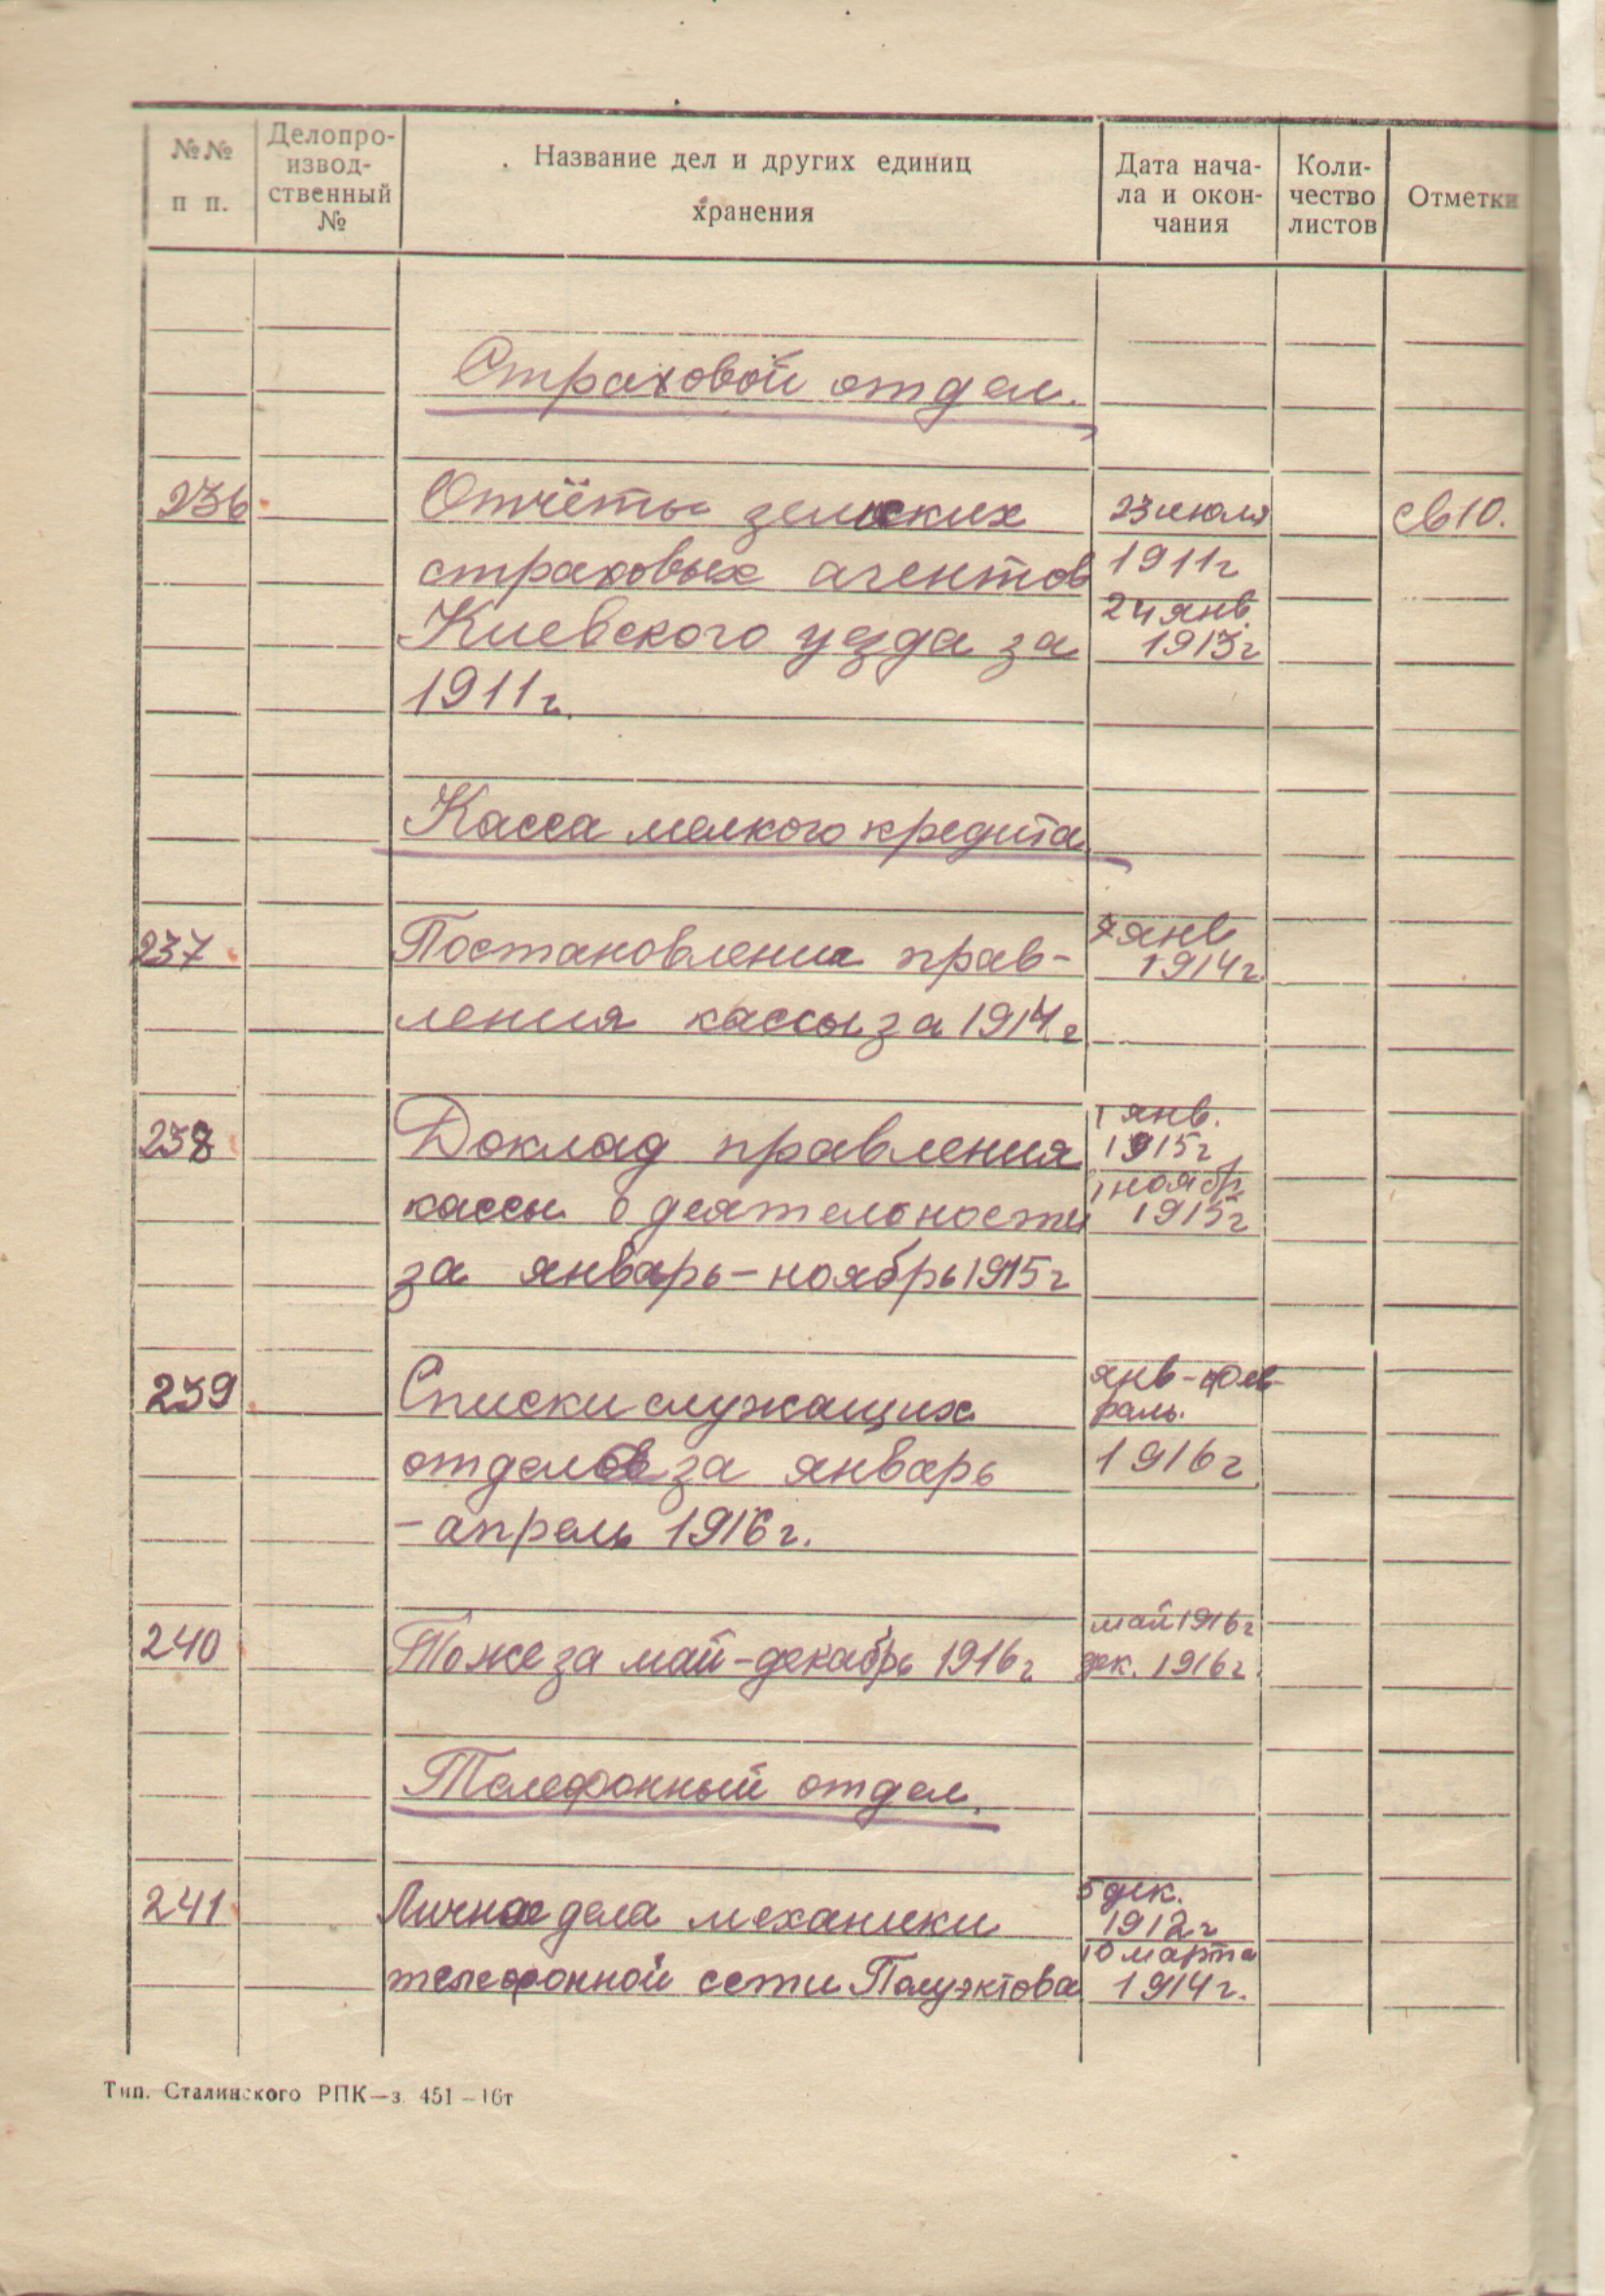 №№ п п.
Делопро-
извод-
ственный
№
Название дел и других единиц
хранения
Дата нача-
ла и окон-
чания
Коли-
чество
листов
Отметки
Страховой отдел.
236 Отчёты земских 23 июля св 10.
страховых агентов 1911г
24 янв.
Киевского уезда за 1913г
1911г.
Касса мелкого кредита
237 Постановления прав- 7 янв
1914г.
ления кассы за 1914 г
1 янв.
238 Доклад правления 1915г
1 ноябр
кассы о деятельности 1915г
за январь-ноябрь 1915г
янв-фев-
239 Списки служащих раль.
отделов за январь 1916г
-апрель 1916г.
май 1916г
240 То же за май-декабрь 1916г дек. 1916г.
Телефонный отдел.
5 дек.
241 Личное дела механики 1912г
10 марта
телефонной сети Полуэктова 1914г.
Тип. Сталинского РПК—з. 451—16т